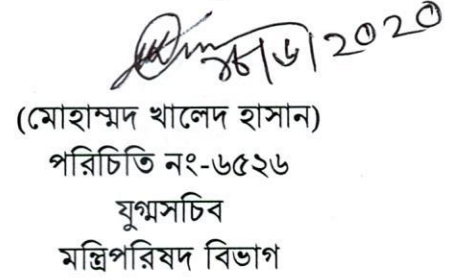 (মোহাম্মদ খালেদ হাসান)
পরিচিতি নং-৬৫২৬
যুগ্মসচিব
মন্ত্রিপরিষদ বিভাগ